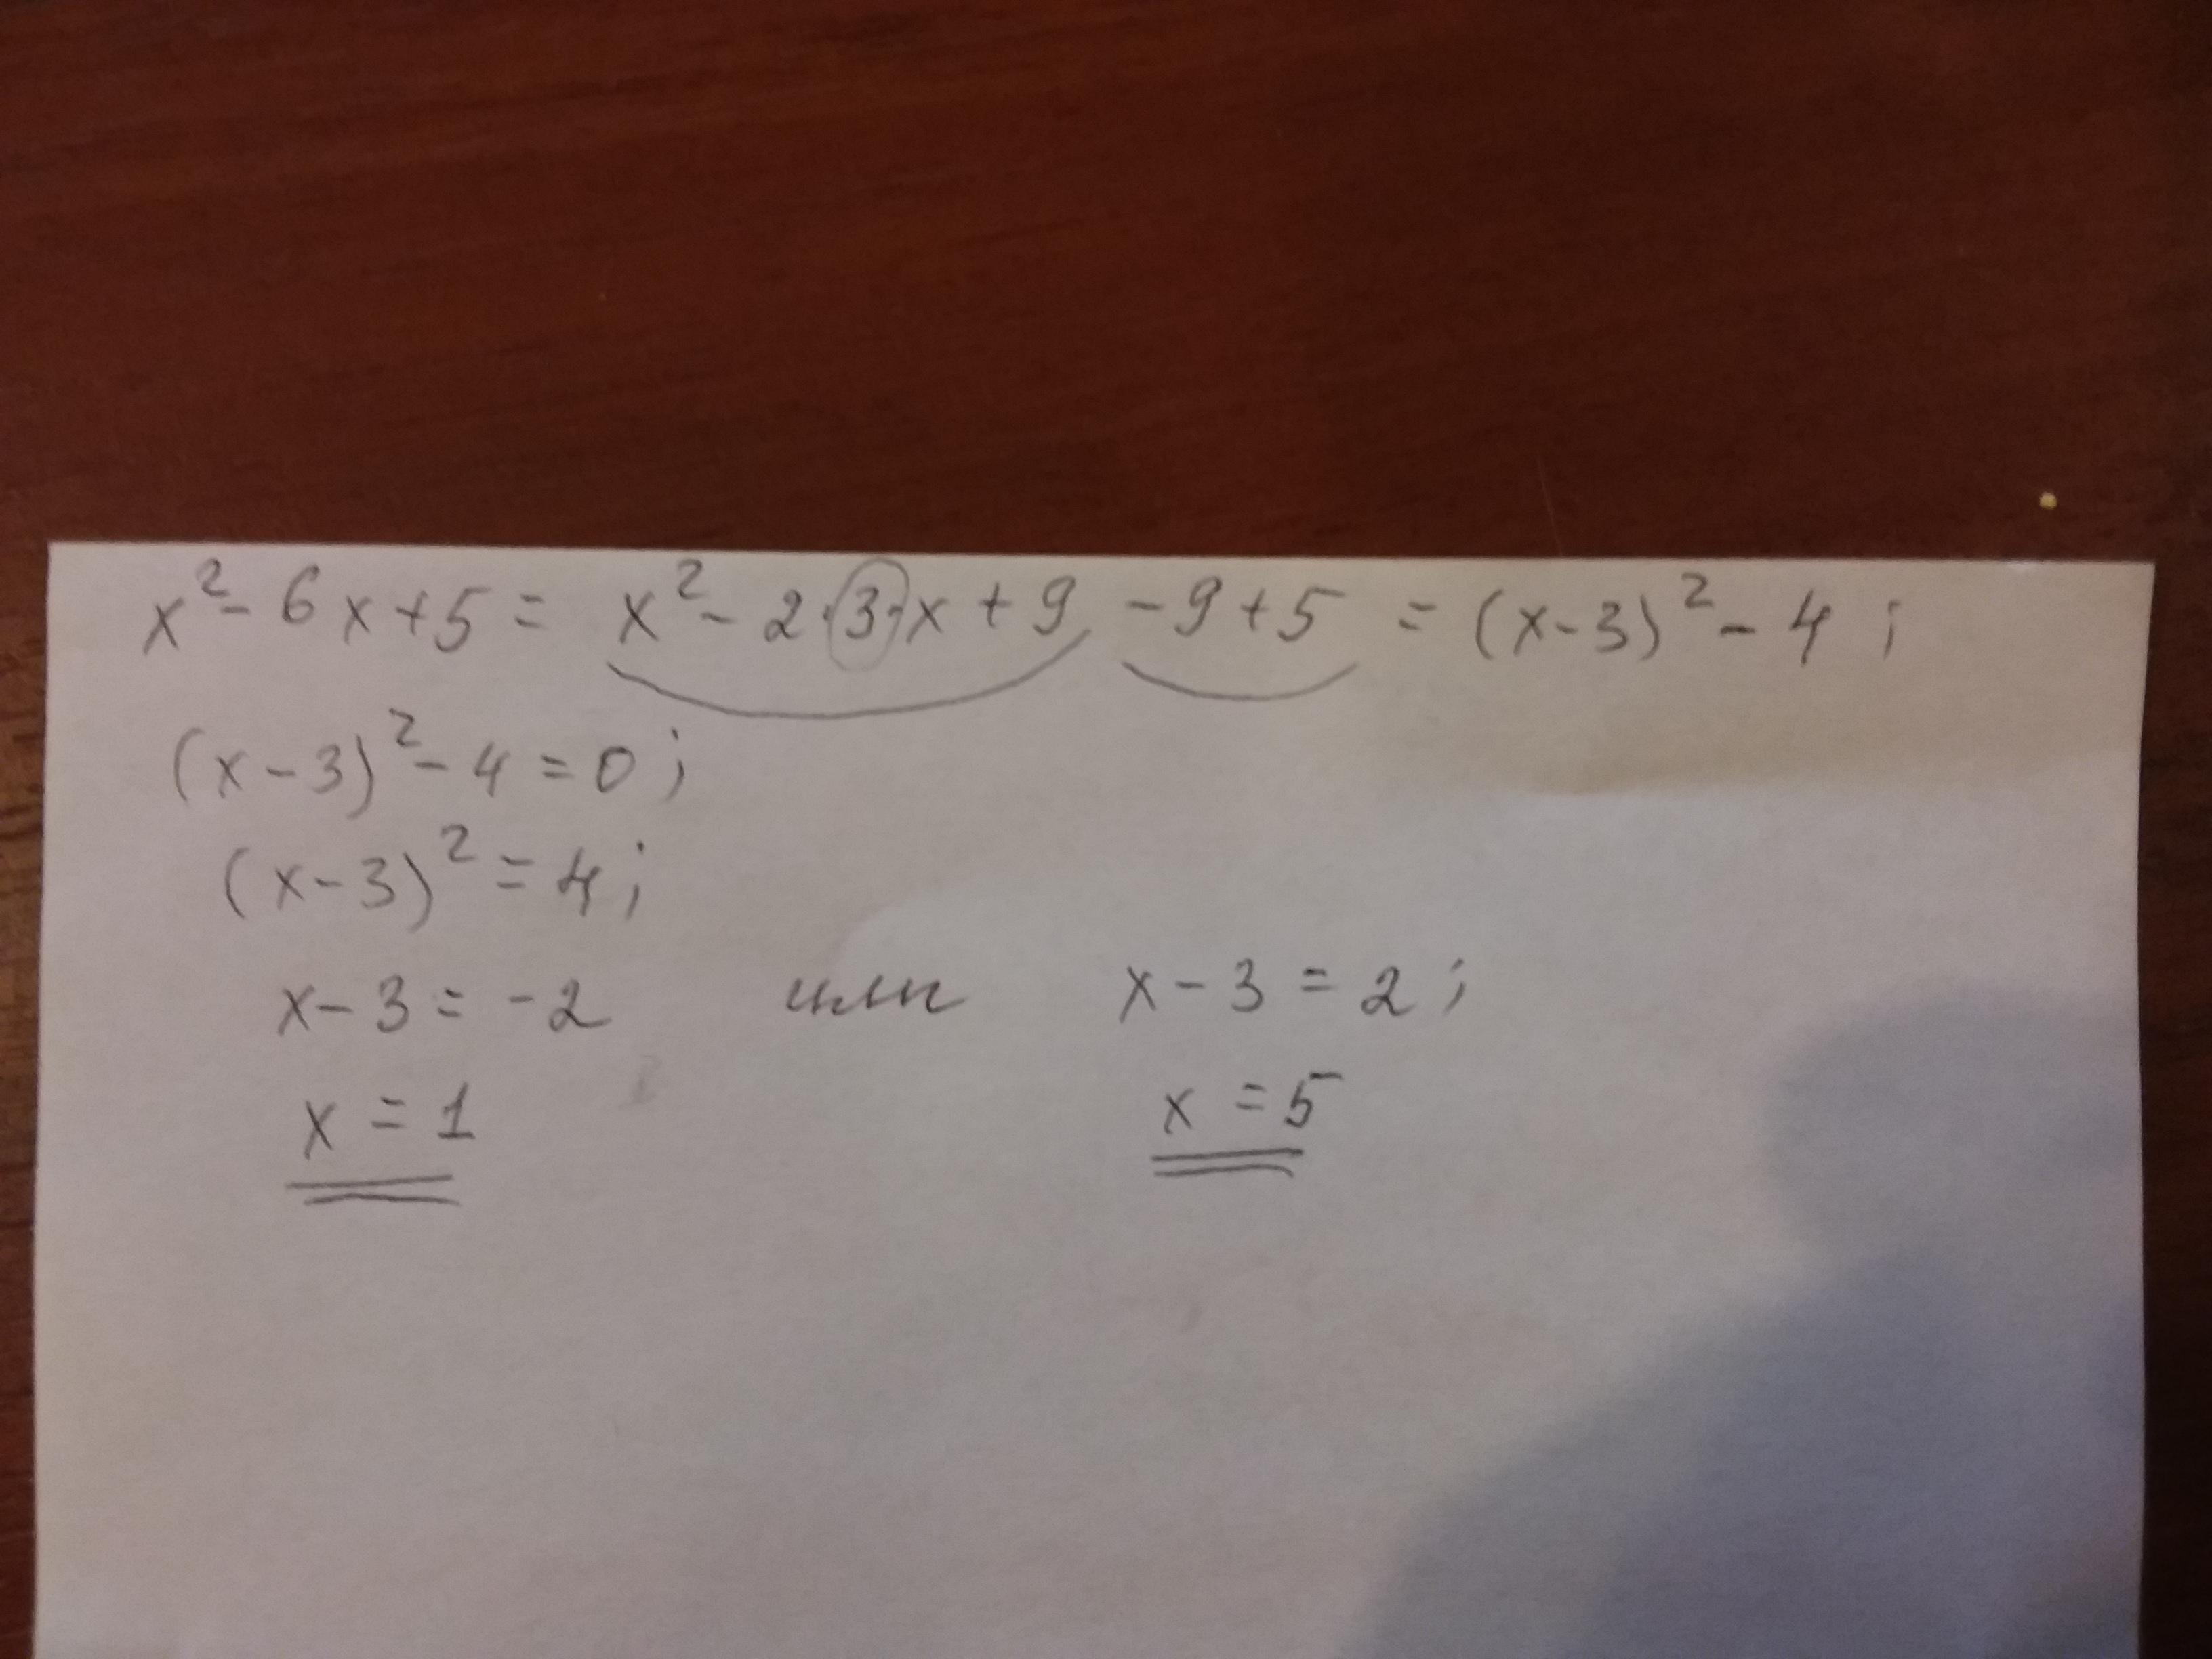 x² - 6x + 5 = x² - 2·3·x + 9 - 9 + 5 = (x-3)² - 4 ;
(x-3)² - 4 = 0 ;
(x-3)² = 4 ;
x - 3 = -2 или x - 3 = 2 ;
x = 1 x = 5